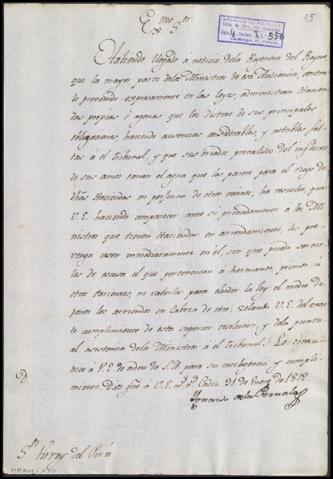 15
Exmo. Sor.
Habiendo llegado à noticia dela Regencia del Reyno,
que la mayor parte delos Ministros de esa Audiencia, contra
lo prevenido expresamente en las leyes, administran Hacien-
das propias ó agenas que los distrae de sus principales
obligaciones, haciendo ausencias considerables, y notables fal-
tas à el tribunal; y que sus criados prevalidos del influxo
de sus amos toman el agua que les parece para el riego de
dhas Haciendas en perjuicio de otros vecinos; ha resuelto, que
V.E. haciendo comparecer ante si privadamente à los Mi-
nistros que tienen Haciendas en arrendamiento, les pre-
venga cesen inmediatamente en él, sin que pueda servir-
les de escusa el que pertenezcan à hermanos, primos ù
otros parientes, ni valerles para eludir la ley el medio de
poner los arriendos en Cabeza de otro: zelando V.E. del exac-
to cumplimiento de esta superior resolucion, y dela puntu-
al asistencia delos Ministros à el Tribunal. Lo comu-
nico à V.E. de orden de S.A. para su inteligencia y cumpli-
miento. Dios gue à V.E. ms. as. Cadiz 31 de Enero de 1812
Sor. Virrey del Perú